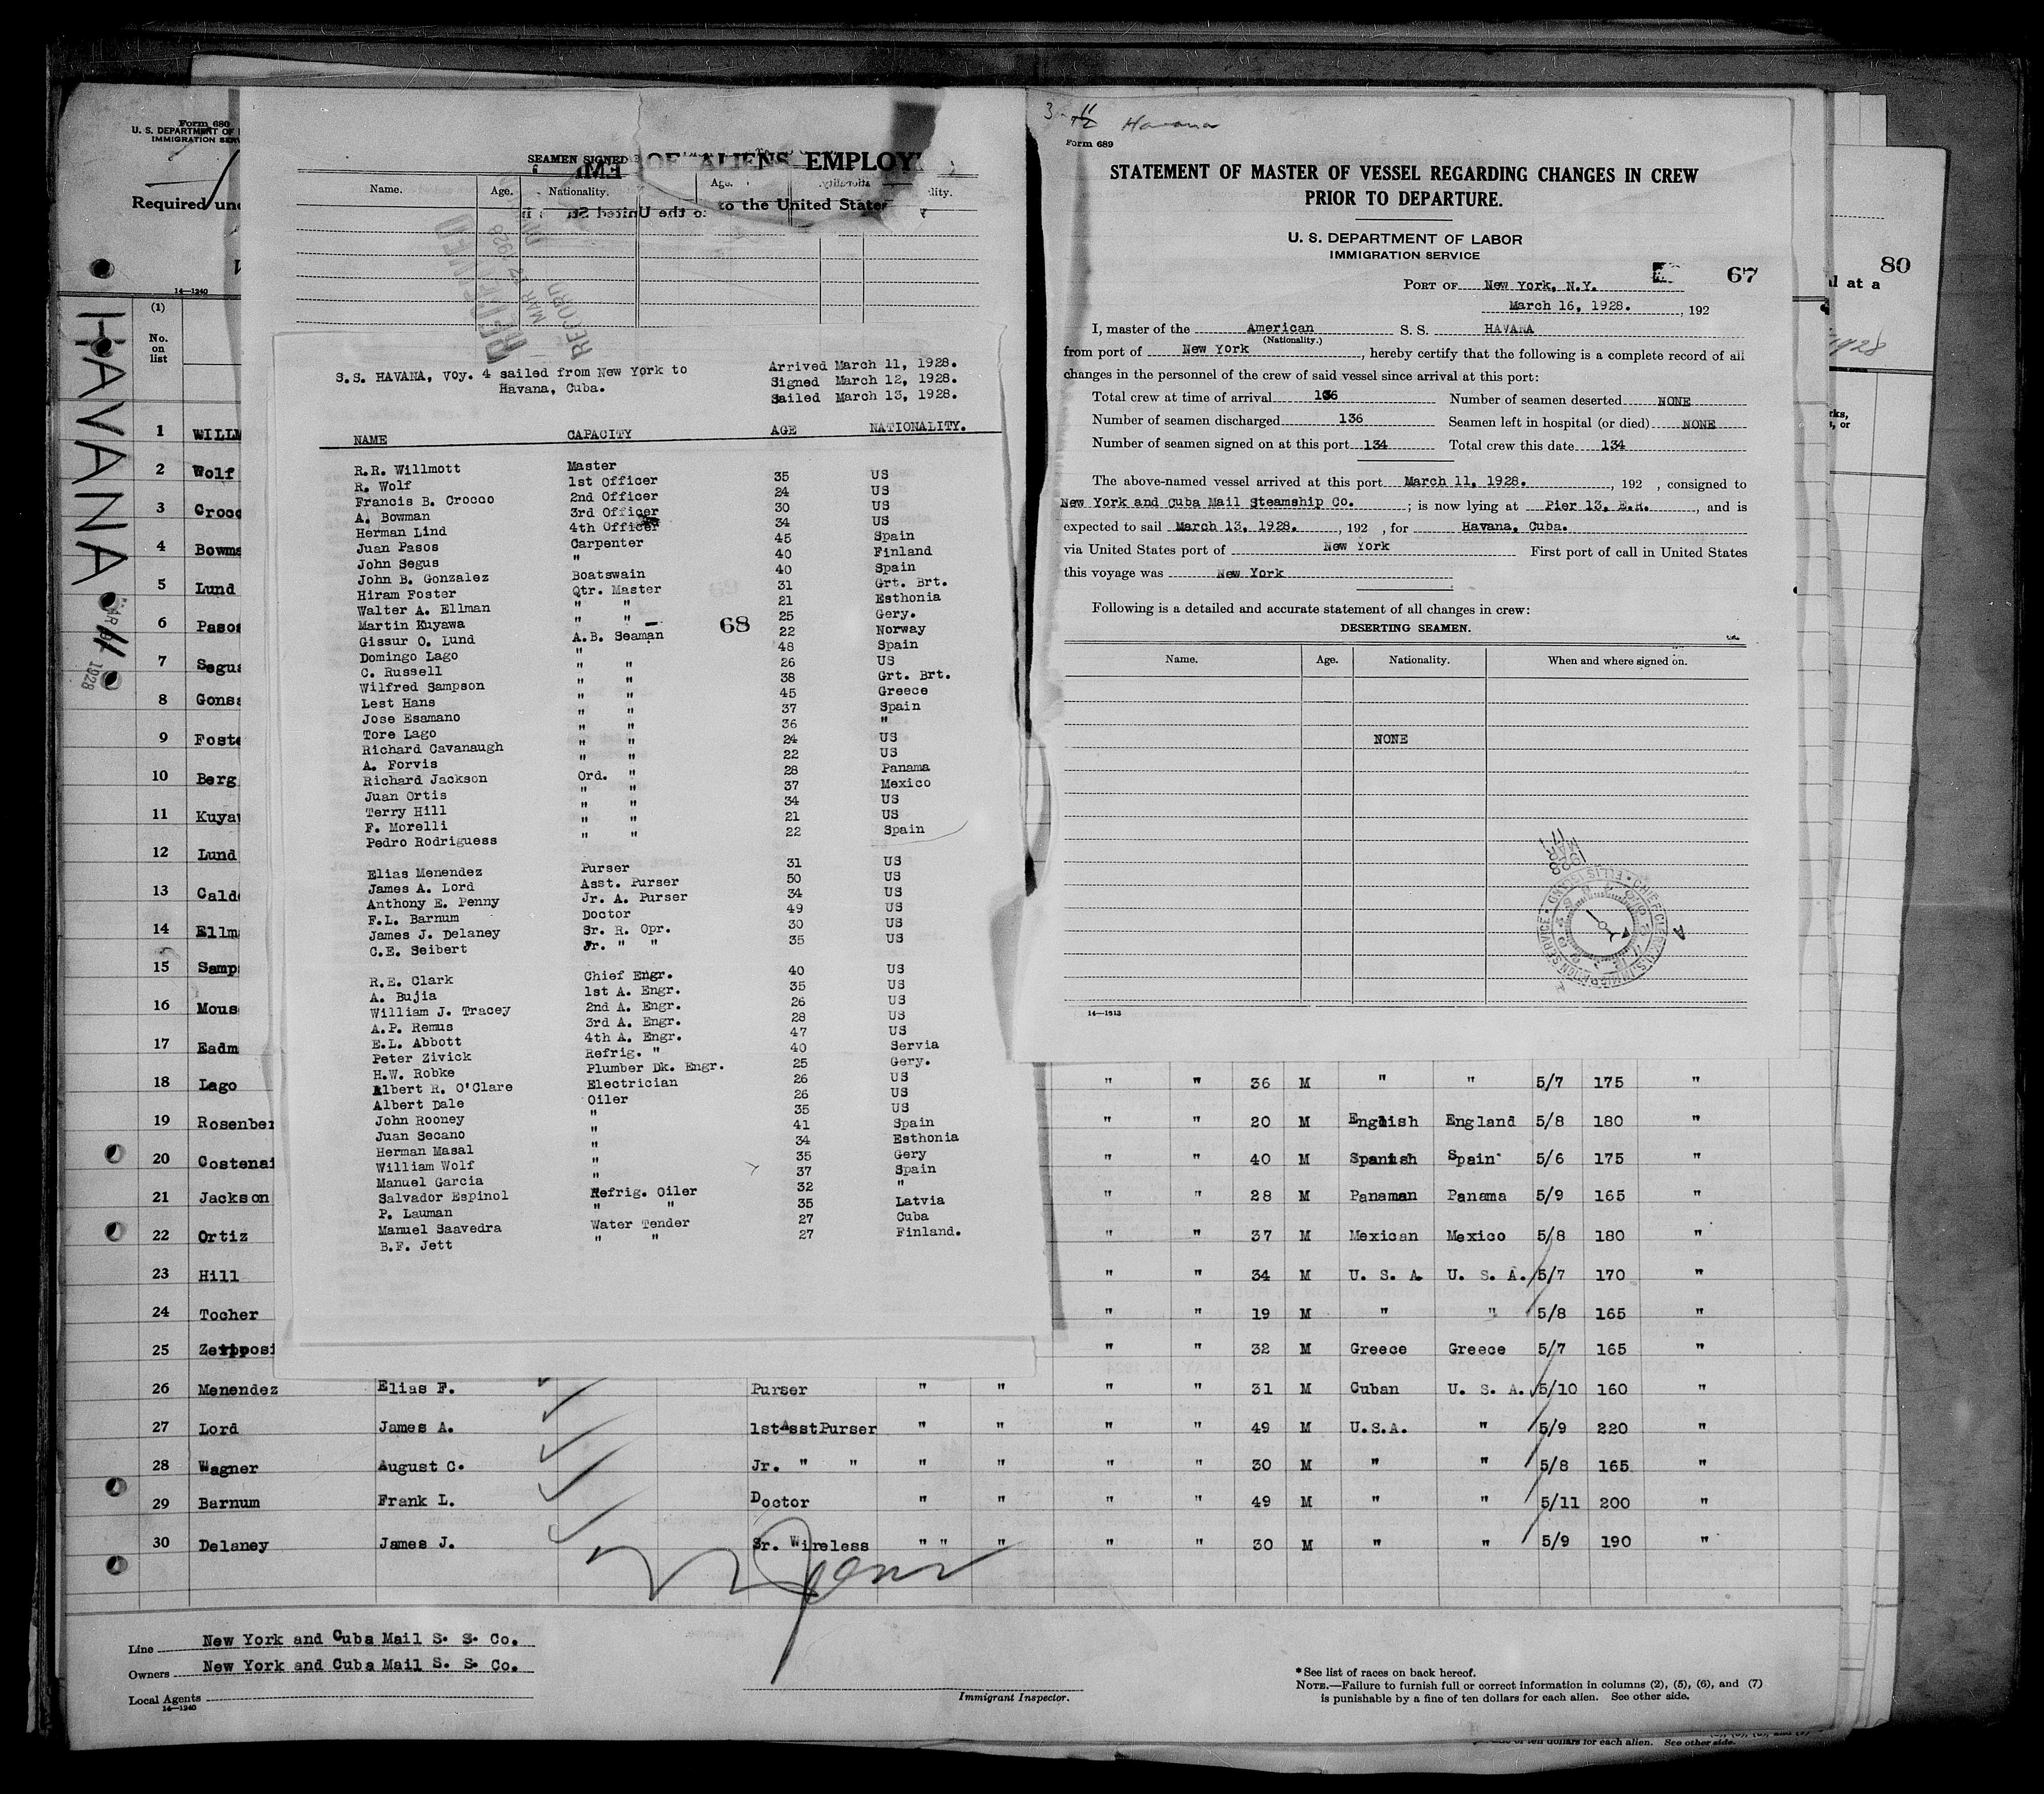 Form 680
U. S. DEPARTMENT OF
IMMIGRATION SERV
Required und
14—1240
(1)
No. on list
HAVANA
1 WILLM
2 Wolf
3 Crocc
4 Bowma
5 Lund
6 Pasos
7 Segus
8 Gonsa
9 Foste
10 Berg
11 Kuyaw
12 Lund
13 Calde
14 Ellm
15 Samp
16 Mous
17 Eadm
18 Lago " " 36 M " " 5/7 175 "
19 Rosenber " " 20 M English England 5/8 180 "
20 Costenai " " 40 M Spanish Spain 5/6 175 "
21 Jackson " " 28 M Panaman Panama 5/9 165 "
22 Ortiz " " 37 M Mexican Mexico 5/8 180 "
23 Hill " " 34 M U. S. A. U. S. A. 5/7 170 "
24 Tocher " " 19 M " " 5/8 165 "
25 Zeipposi " " 32 M Greece Greece 5/7 165 "
26 Menendez Elias F. Purser " " " " 31 M Cuban U. S. A. 5/10 160 "
27 Lord James A. 1stAsstPurser " " " " 49 M U.S.A. " 5/9 220 "
28 Wagner August C. Jr. " " " " " " 30 M " " 5/8 165 "
29 Barnum Frank L. Doctor " " " " 49 M " " 5/11 200 "
30 Delaney James J. Sr. Wireless " " " " " 30 M " " 5/9 190 "
Line New York and Cuba Mail S. S. Co.
Owners New York and Cuba Mail S. S. Co.
Local Agents
14—1240
Immigrant Inspector.
*See list of races on back hereof.
NOTE.—Failure to furnish full or correct information in columns (2), (5), (6), and (7)
is punishable by a fine of ten dollars for each alien. See other side.
SEAMEN SIGNED
OF ALIENS EMPLOY
Name. Age. Nationality. Age.
to the United States
S.S. HAVANA, Voy. 4 sailed from New York to
Havana, Cuba.
Arrived March 11, 1928.
Signed March 12, 1928.
Sailed March 13, 1928.
NAME CAPACITY AGE NATIONALITY.
R.R. Willmott Master
R. Wolf 1st Officer 35 US
Francis B. Crocco 2nd Officer 24 US
A. Bowman 3rd Officer 30 US
Herman Lind 4th Officer 34 US
Juan Pasos Carpenter 45 Spain
John Segus " 40 Finland
John B. Gonzalez Boatswain 40 Spain
Hiram Foster Qtr. Master 31 Grt. Brt.
Walter A. Ellman " " 21 Esthonia
Martin Kuyawa " " 25 Gery.
Gissur O. Lund A.B. Seaman 22 Norway
68
Domingo Lago " 48 Spain
C. Russell " " 26 US
Wilfred Sampson " " 38 Grt. Brt.
Lest Hans " " 45 Greece
Jose Esamano " " 37 Spain
Tore Lago " " 36 "
Richard Cavanaugh " " 24 US
A. Forvis " " 22 US
Richard Jackson Ord. " 28 Panama
Juan Ortis " " 37 Mexico
Terry Hill " " 34 US
F. Morelli " " 21 US
Pedro Rodriguess " " 22 Spain
Elias Menendez Purser 31 US
James A. Lord Asst. Purser 50 US
Anthony E. Penny Jr. A. Purser 34 US
F.L. Barnum Doctor 49 US
James J. Delaney Sr. R. Opr. 30 US
C.E. Seibert Jr. " " 35 US
R.E. Clark Chief Engr. 40 US
A. Bujia 1st A. Engr. 35 US
William J. Tracey 2nd A. Engr. 26 US
A.P. Remus 3rd A. Engr. 28 US
E.L. Abbott 4th A. Engr. 47 US
Peter Zivick Refrig. " 40 Servia
H.W. Robke Plumber Dk. Engr. 25 Gery.
Albert R. O'Clare Electrician 26 US
Albert Dale Oiler 26 US
John Rooney " 35 US
Juan Secano " 41 Spain
Herman Masal " 34 Esthonia
William Wolf " 35 Gery
Manuel Garcia " 37 Spain
Salvador Espinol Refrig. Oiler 32 "
P. Lauman " " 35 Latvia
Manuel Saavedra Water Tender 27 Cuba
B.F. Jett " " 27 Finland.
Havana
Form 689
STATEMENT OF MASTER OF VESSEL REGARDING CHANGES IN CREW
PRIOR TO DEPARTURE.
U. S. DEPARTMENT OF LABOR
IMMIGRATION SERVICE
67
PORT OF New York, N.Y.
March 16, 1928. , 192
I, master of the American S. S. HAVANA
(Nationality.)
from port of New York, hereby certify that the following is a complete record of all
changes in the personnel of the crew of said vessel since arrival at this port:
Total crew at time of arrival 136 Number of seamen deserted NONE
Number of seamen discharged 136 Seamen left in hospital (or died) NONE
Number of seamen signed on at this port 134 Total crew this date 134
The above-named vessel arrived at this port March 11, 1928. , 192 , consigned to
New York and Cuba Mail Steamship Co. ; is now lying at Pier 13, E.R. , and is
expected to sail March 13, 1928. , 192 , for Havana, Cuba.
via United States port of New York First port of call in United States
this voyage was New York
Following is a detailed and accurate statement of all changes in crew:
DESERTING SEAMEN.
Name. Age. Nationality. When and where signed on.
NONE
14—1913
80
l at a
1928